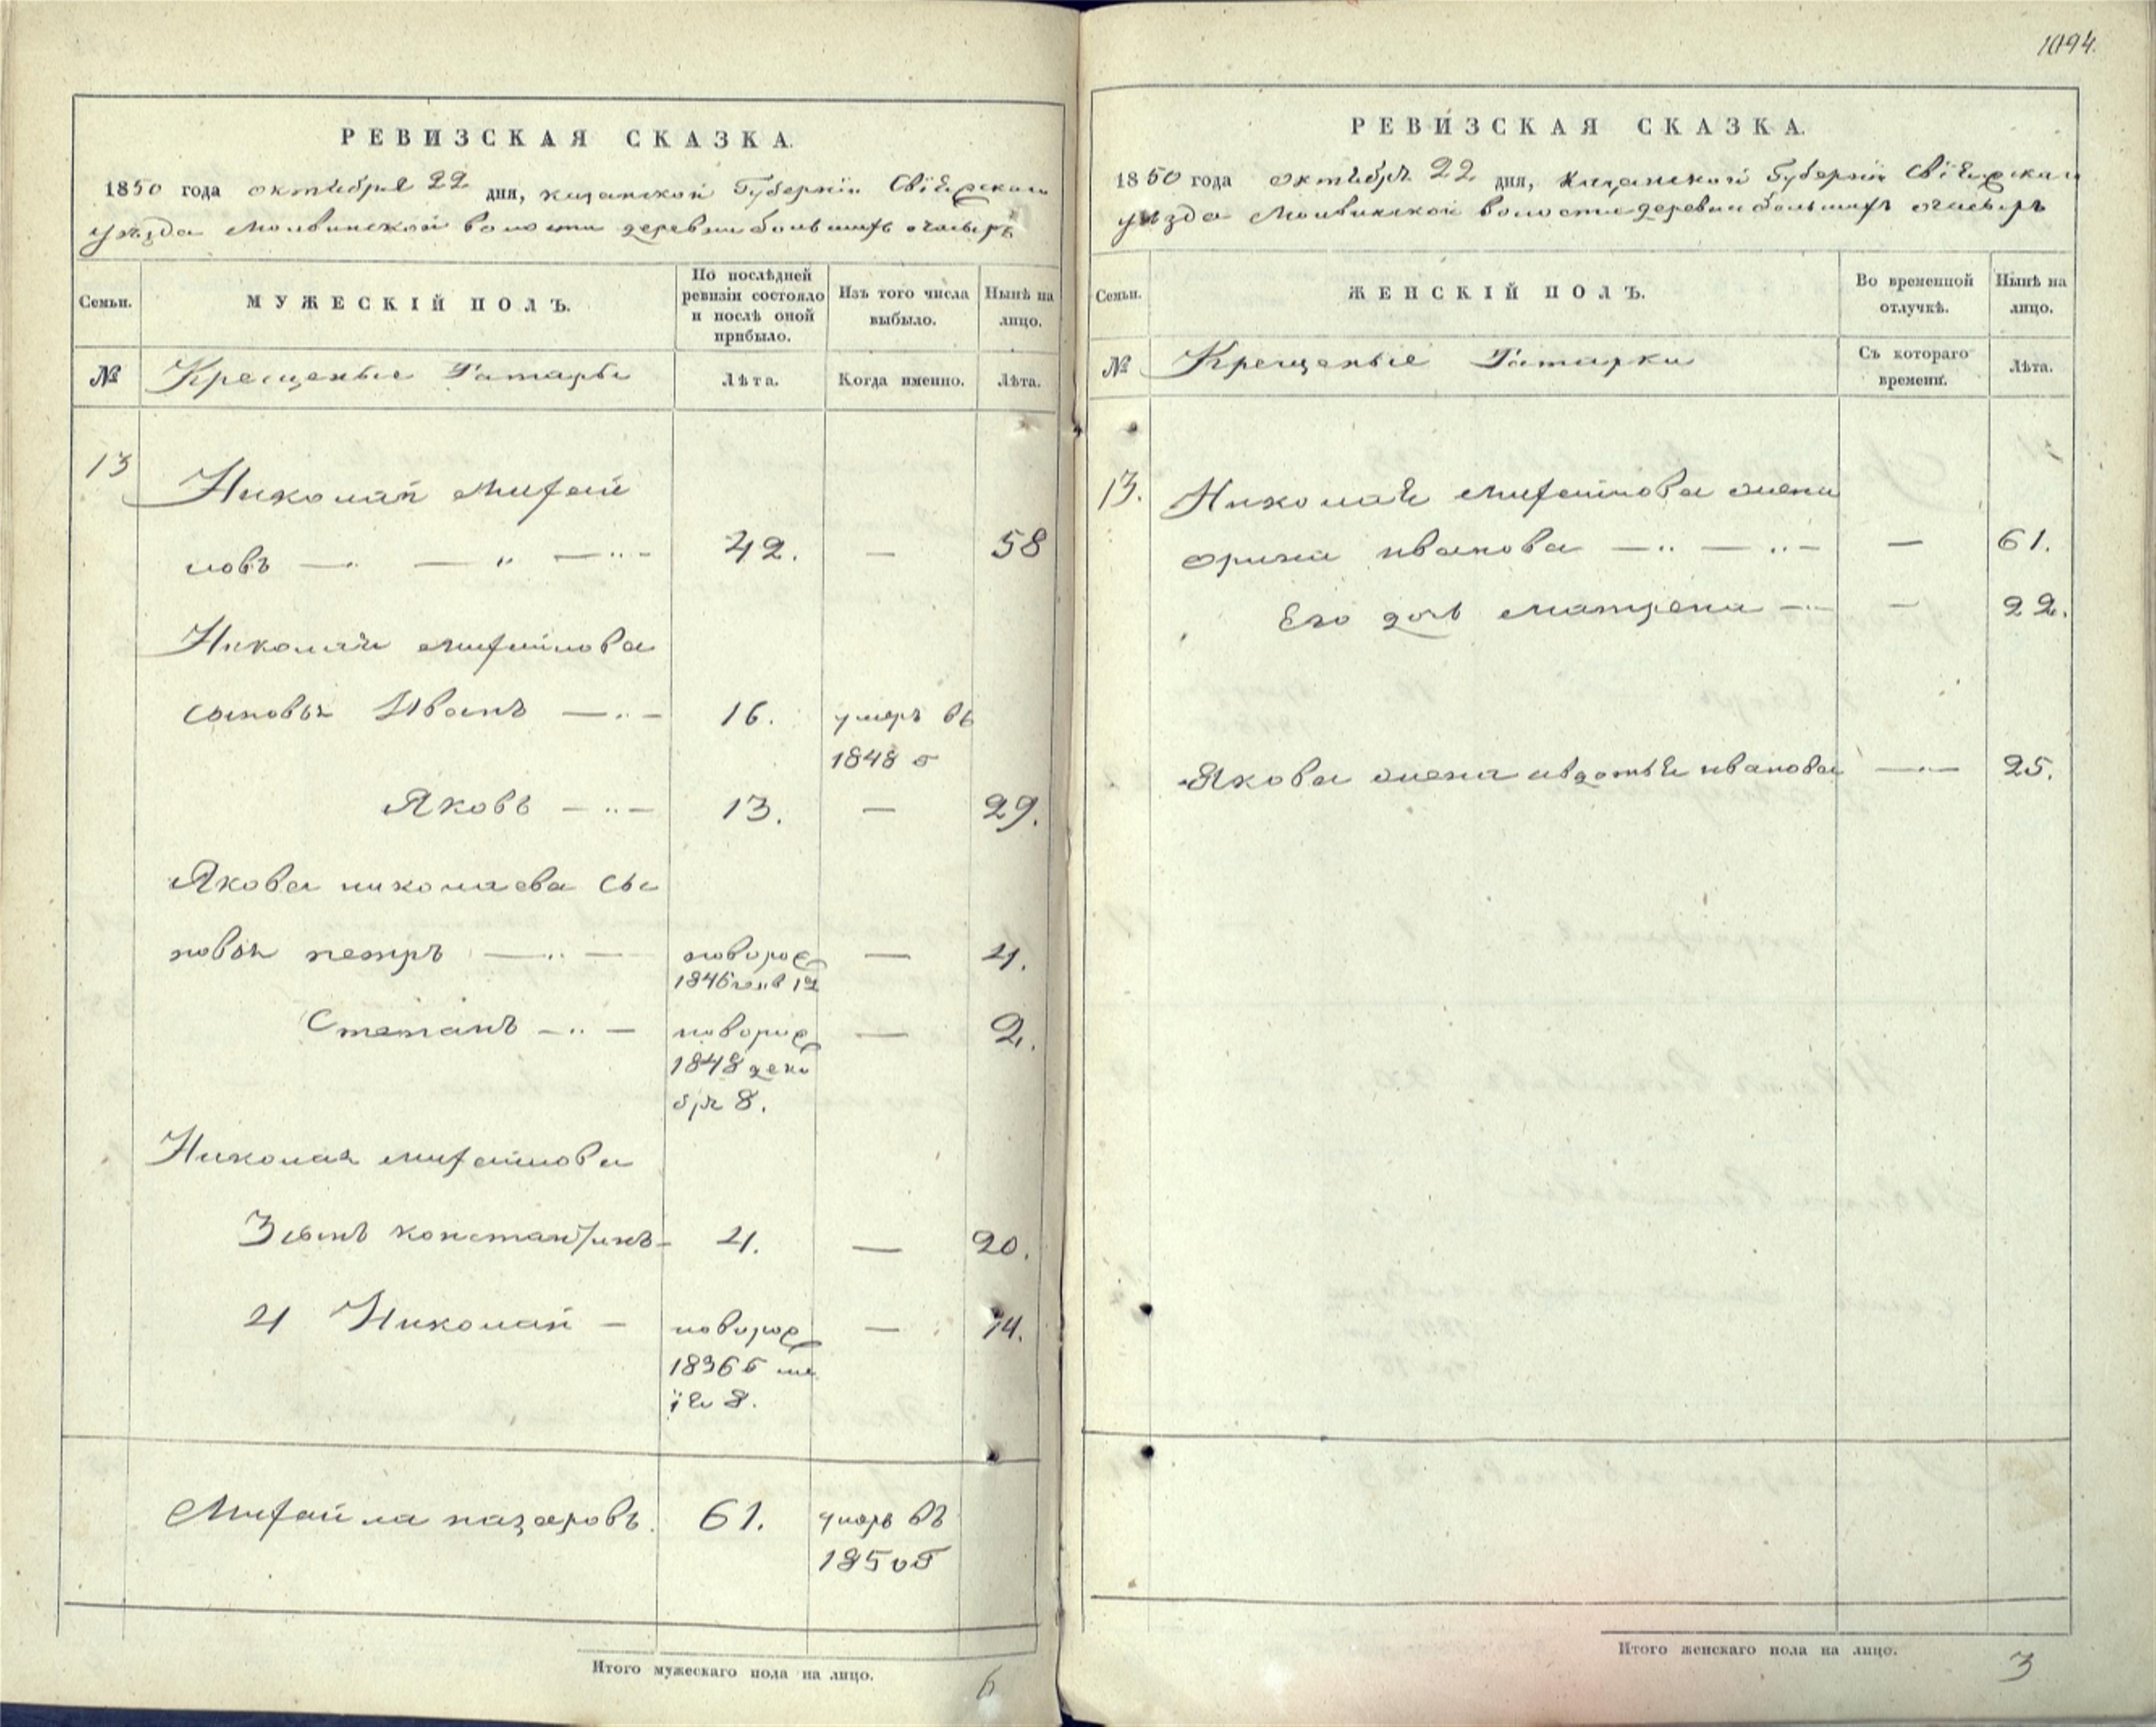 1094.
РЕВИЗСКАЯ СКАЗКА.
1850 года октября 22 дня, казанской Губерніи Свіяжскаго
уѣзда Молвинской волости деревни большихъ ачасыръ
Семьи.
МУЖЕСКІЙ ПОЛЪ.
По послѣдней
ревизіи состояло
и послѣ оной
прибыло.
Изъ того числа
выбыло.
Нынѣ на
лицо.
№
Крещеные Татары
Лѣта.
Когда именно.
Лѣта.
13
Николай Михай
ловъ 42. — 58
Николая михайлова
сыновья Иванъ 16. умеръ въ
1848 г
Яковъ 13. — 29.
Якова николаева сы
новья петръ новорож — 4.
1846 генв 12
Степанъ новорож — 2.
1848 дека
бря 8.
Николая михайлова
3 сынъ константинъ 4. — 20.
4 Николай новорож — 14.
1836 г ма
ія 8.
Михайла назаровъ. 61. умеръ въ
1850 г
Итого мужескаго пола на лицо. 6
РЕВИЗСКАЯ СКАЗКА.
1850 года октября 22 дня, Казанской Губерніи Свіяжскаго
уѣзда Молвинской волости деревни большихъ ачасыръ
Семьи.
ЖЕНСКІЙ ПОЛЪ.
Во временной
отлучкѣ.
Нынѣ на
лицо.
№
Крещеные Татарки
Съ котораго
времени.
Лѣта.
13. Николая михайлова жена
орина иванова — 61.
Его дочь матрена — 22.
Якова жена авдотья иванова — 25.
Итого женскаго пола на лицо. 3